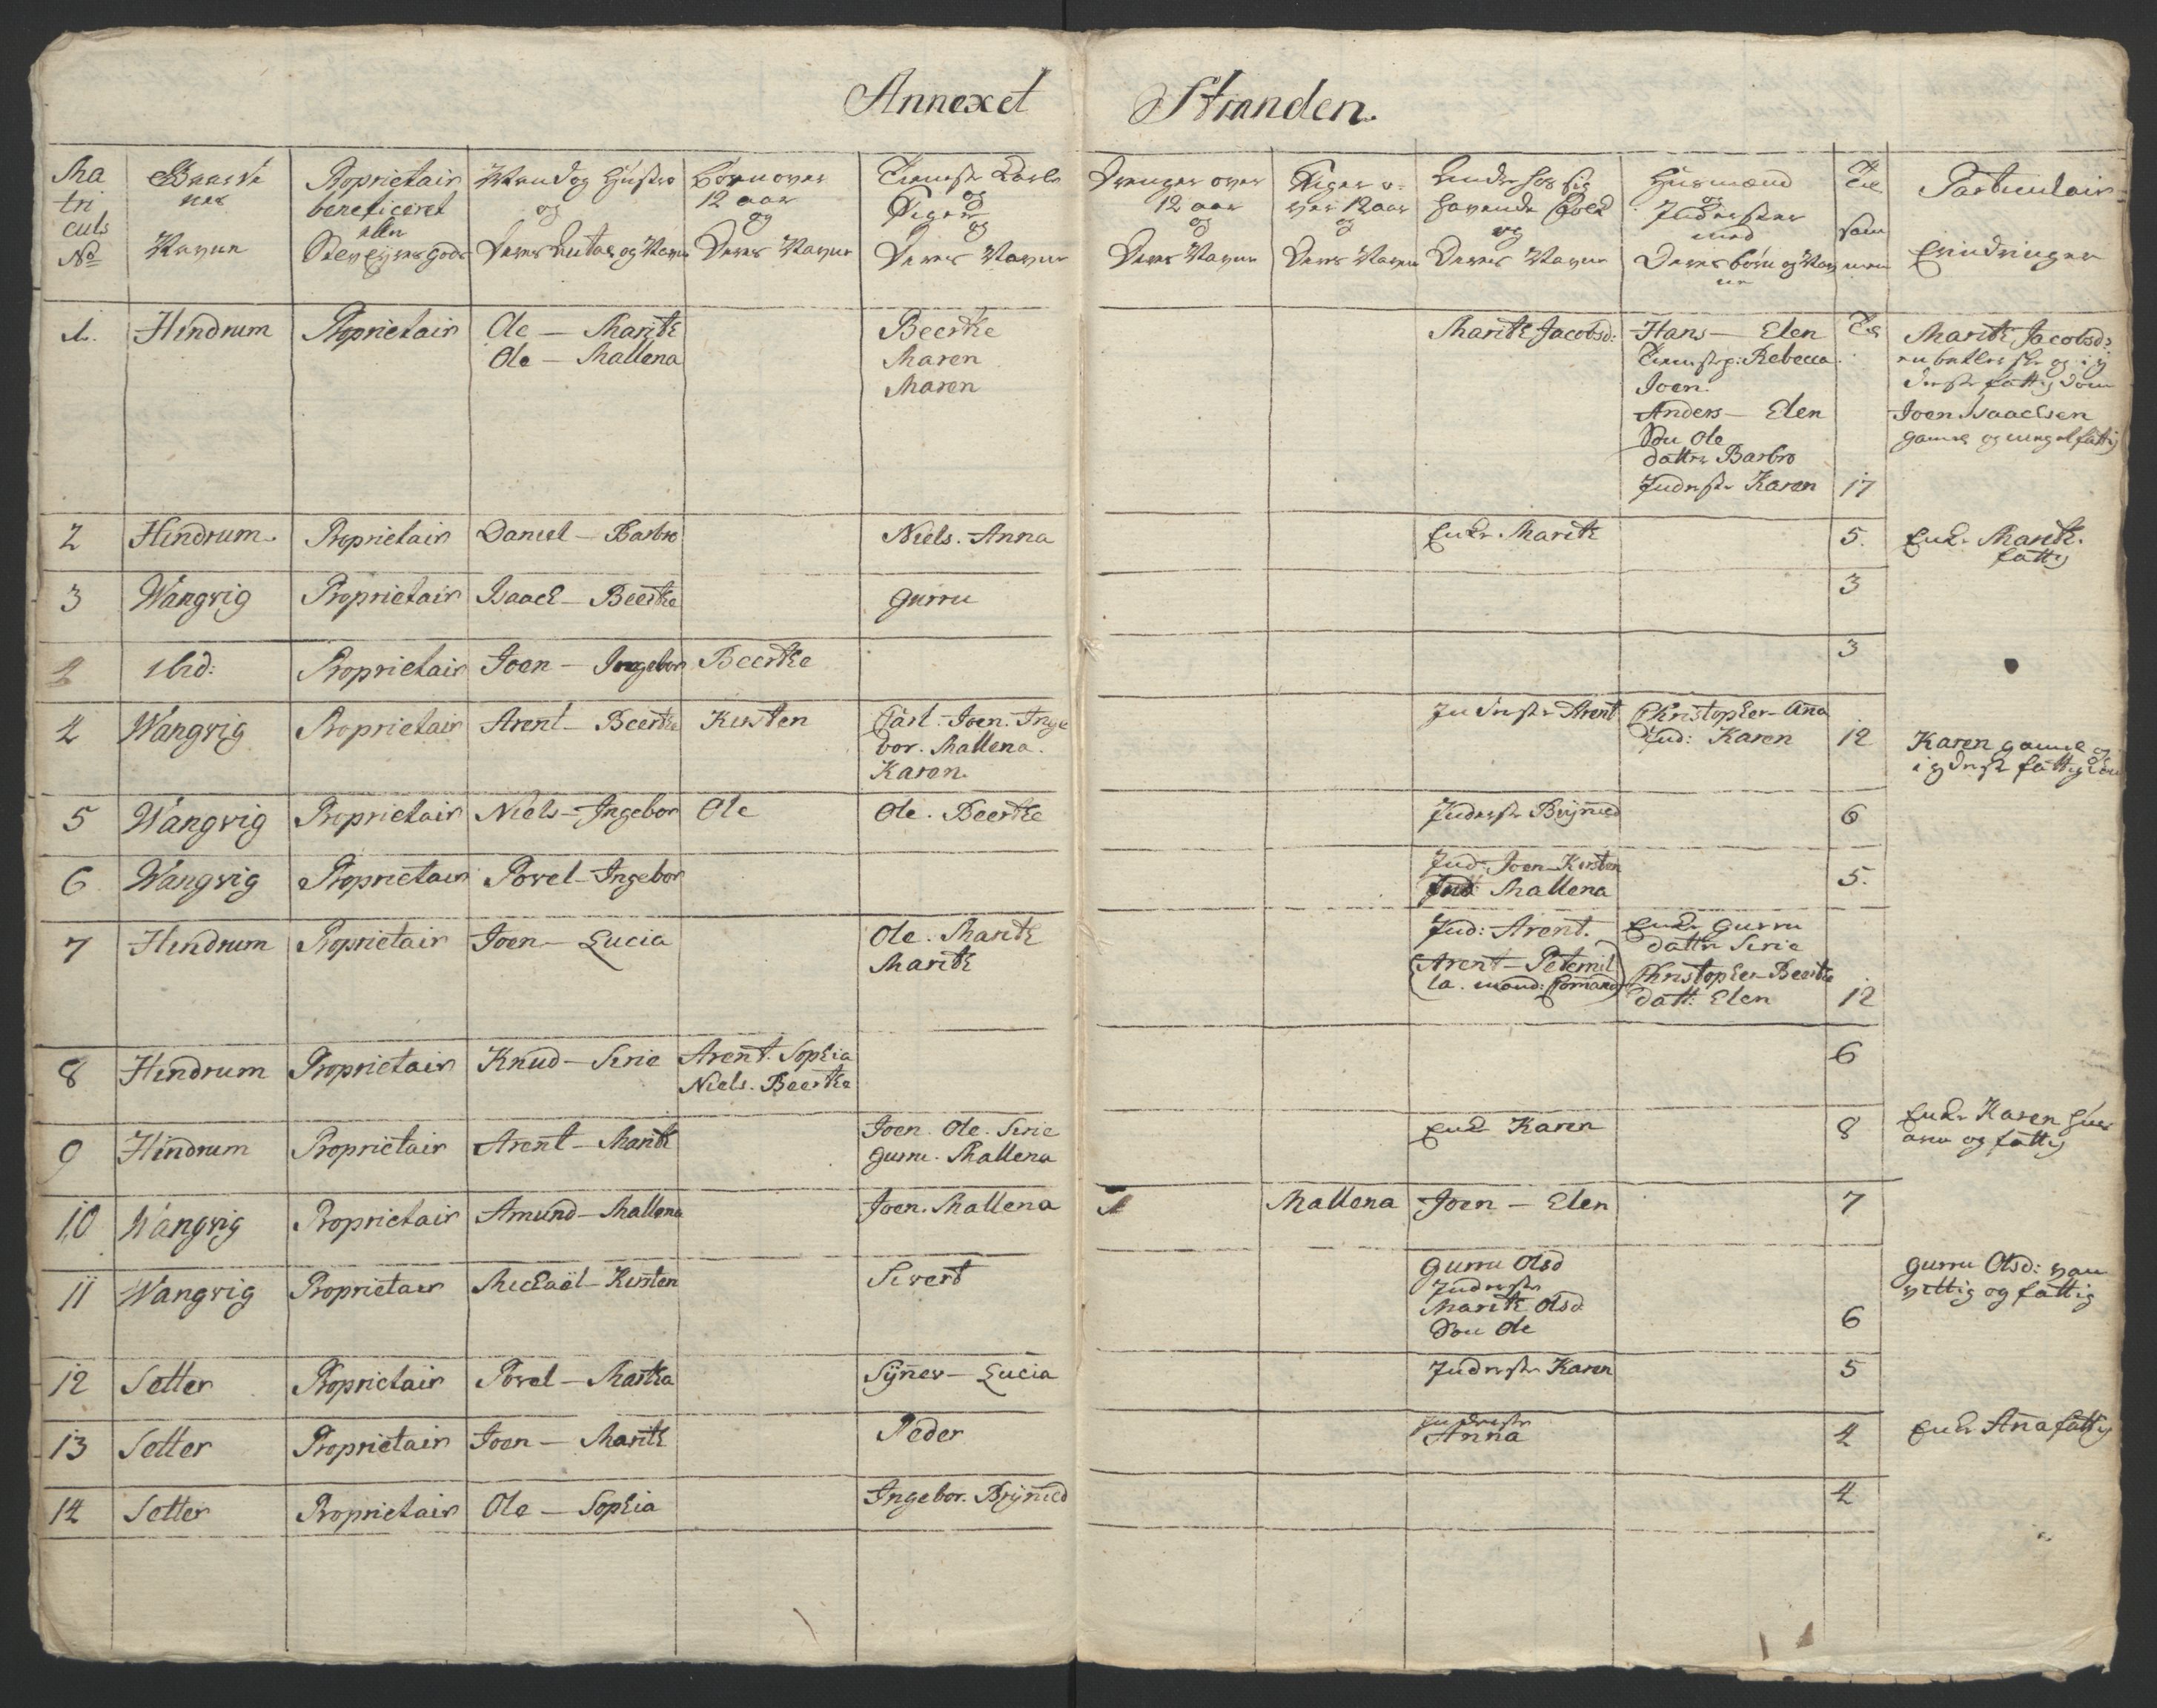 Annexet Stranden.
Ma
tri
culs
No
Gaarde
nes
Navne
Proprietair
beneficeret
eller
Selveyergods
Mand og Hustro
og
Deres Antal og Navne
Børn over
12 aar
og
Deres Navne
Tieniste Karle
og
Piger
og
Deres Navne
Drenger over
12 aar
og
Deres Navne
Piger o-
ver 12 aar
og
Deres Navne
Andre hos sig
havende Folk
og
Deres Navne
Husmænd
og
Inderster
med
Deres børn og Nav
ne
Til
sam
men
Particulair
Erindringer
1. Hindrum Proprietair Ole — Marith Beerthe Marith Jacobsd: Hans — Elen Til Marith Jacobsd:
Ole — Mallena Maren Tienistp: Rebecca
Maren Joen.
Anders — Elen Joen Isaachsen
Søn Ole gamel og meget fattig
datter Barbro
Inderste Karen 17
2 Hindrum. Proprietair Daniel — Barbro Niels. Anna Enke Marith 5. Enke Marith.
fattig
3 Wangvig Proprietair Isaach — Beerthe Gurru 3
4 Ibid: Proprietair Joen — Ingebor Beerthe 3
4 Wangvig Proprietair Arent — Beerthe Kirsten Carl. Joen. Inge Inderste Arent Christopher — Anna
bor. Mallena. Ind: Karen 12 Karen gamel og
Karen. i yderste fattigdom
5 Wangvig Proprietair Niels — Ingebor Ole Ole. Beerthe Inderste Brynild 6
6 Wangvig Proprietair Povel — Ingebor Ind: Joen — Kirsten 5.
Ind: Mallena
7 Hindrum Proprietair Joen — Lucia Ole. Marith Ind: Arent. Enke Gurru
Marith datter Sirie
(Arent — Peternil Christopher — Beerthe
la. datt: Elen 12
8 Hindrum Proprietair Knud — Sirie Arent. Sophia 6
Niels. Beerthe
9 Hindrum Proprietair Arent — Marith Joen. Ole. Sirie Enke Karen 8 Enke Karen
Gurru. Mallena og fattig
10 Wangvig Proprietair Amund — Mallena Joen. Mallena Mallena Joen — Elen 7
11 Wangvig Proprietair Michaël — Kirsten Sivert Gurru Olsd Gurru Olsd: van
Inderste vittig og fattig
Marith Olsd
Søn Ole 6
12 Setter Proprietair Povel — Martha Synev — Lucia Inderste Karen 5
13 Setter Proprietair Joen — Marith Peder Inderste 4 Enke Ana fattig
Anna
14 Setter Proprietair Ole — Sophia Ingebor. Brynild 4